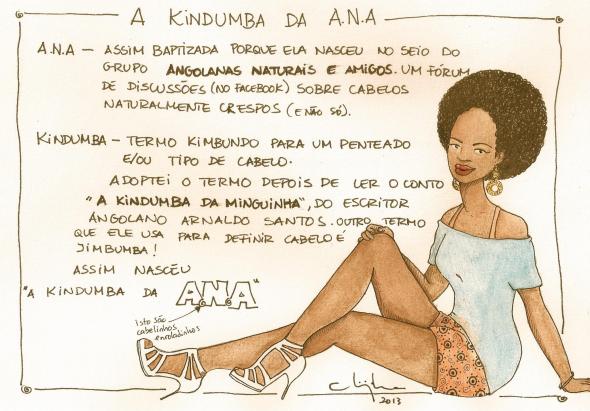 A KINDUMBA DA A.N.A
A.N.A – ASSIM BAPTIZADA PORQUE ELA NASCEU NO SEIO DO
GRUPO ANGOLANAS NATURAIS E AMIGOS. UM FÓRUM
DE DISCUSSÕES (NO FACEBOOK) SOBRE CABELOS
NATURALMENTE CRESPOS (E NÃO SÓ).
KINDUMBA – TERMO KIMBUNDO PARA UM PENTEADO
E/OU TIPO DE CABELO.
ADOPTEI O TERMO DEPOIS DE LER O CONTO
"A KINDUMBA DA MINGUINHA", DO ESCRITOR
ANGOLANO ARNALDO SANTOS. OUTRO TERMO
QUE ELE USA PARA DEFINIR CABELO É
JIMBUMBA!
ASSIM NASCEU
"A KINDUMBA DA A.N.A"
isto são
cabelinhos
enroladinhos
2013